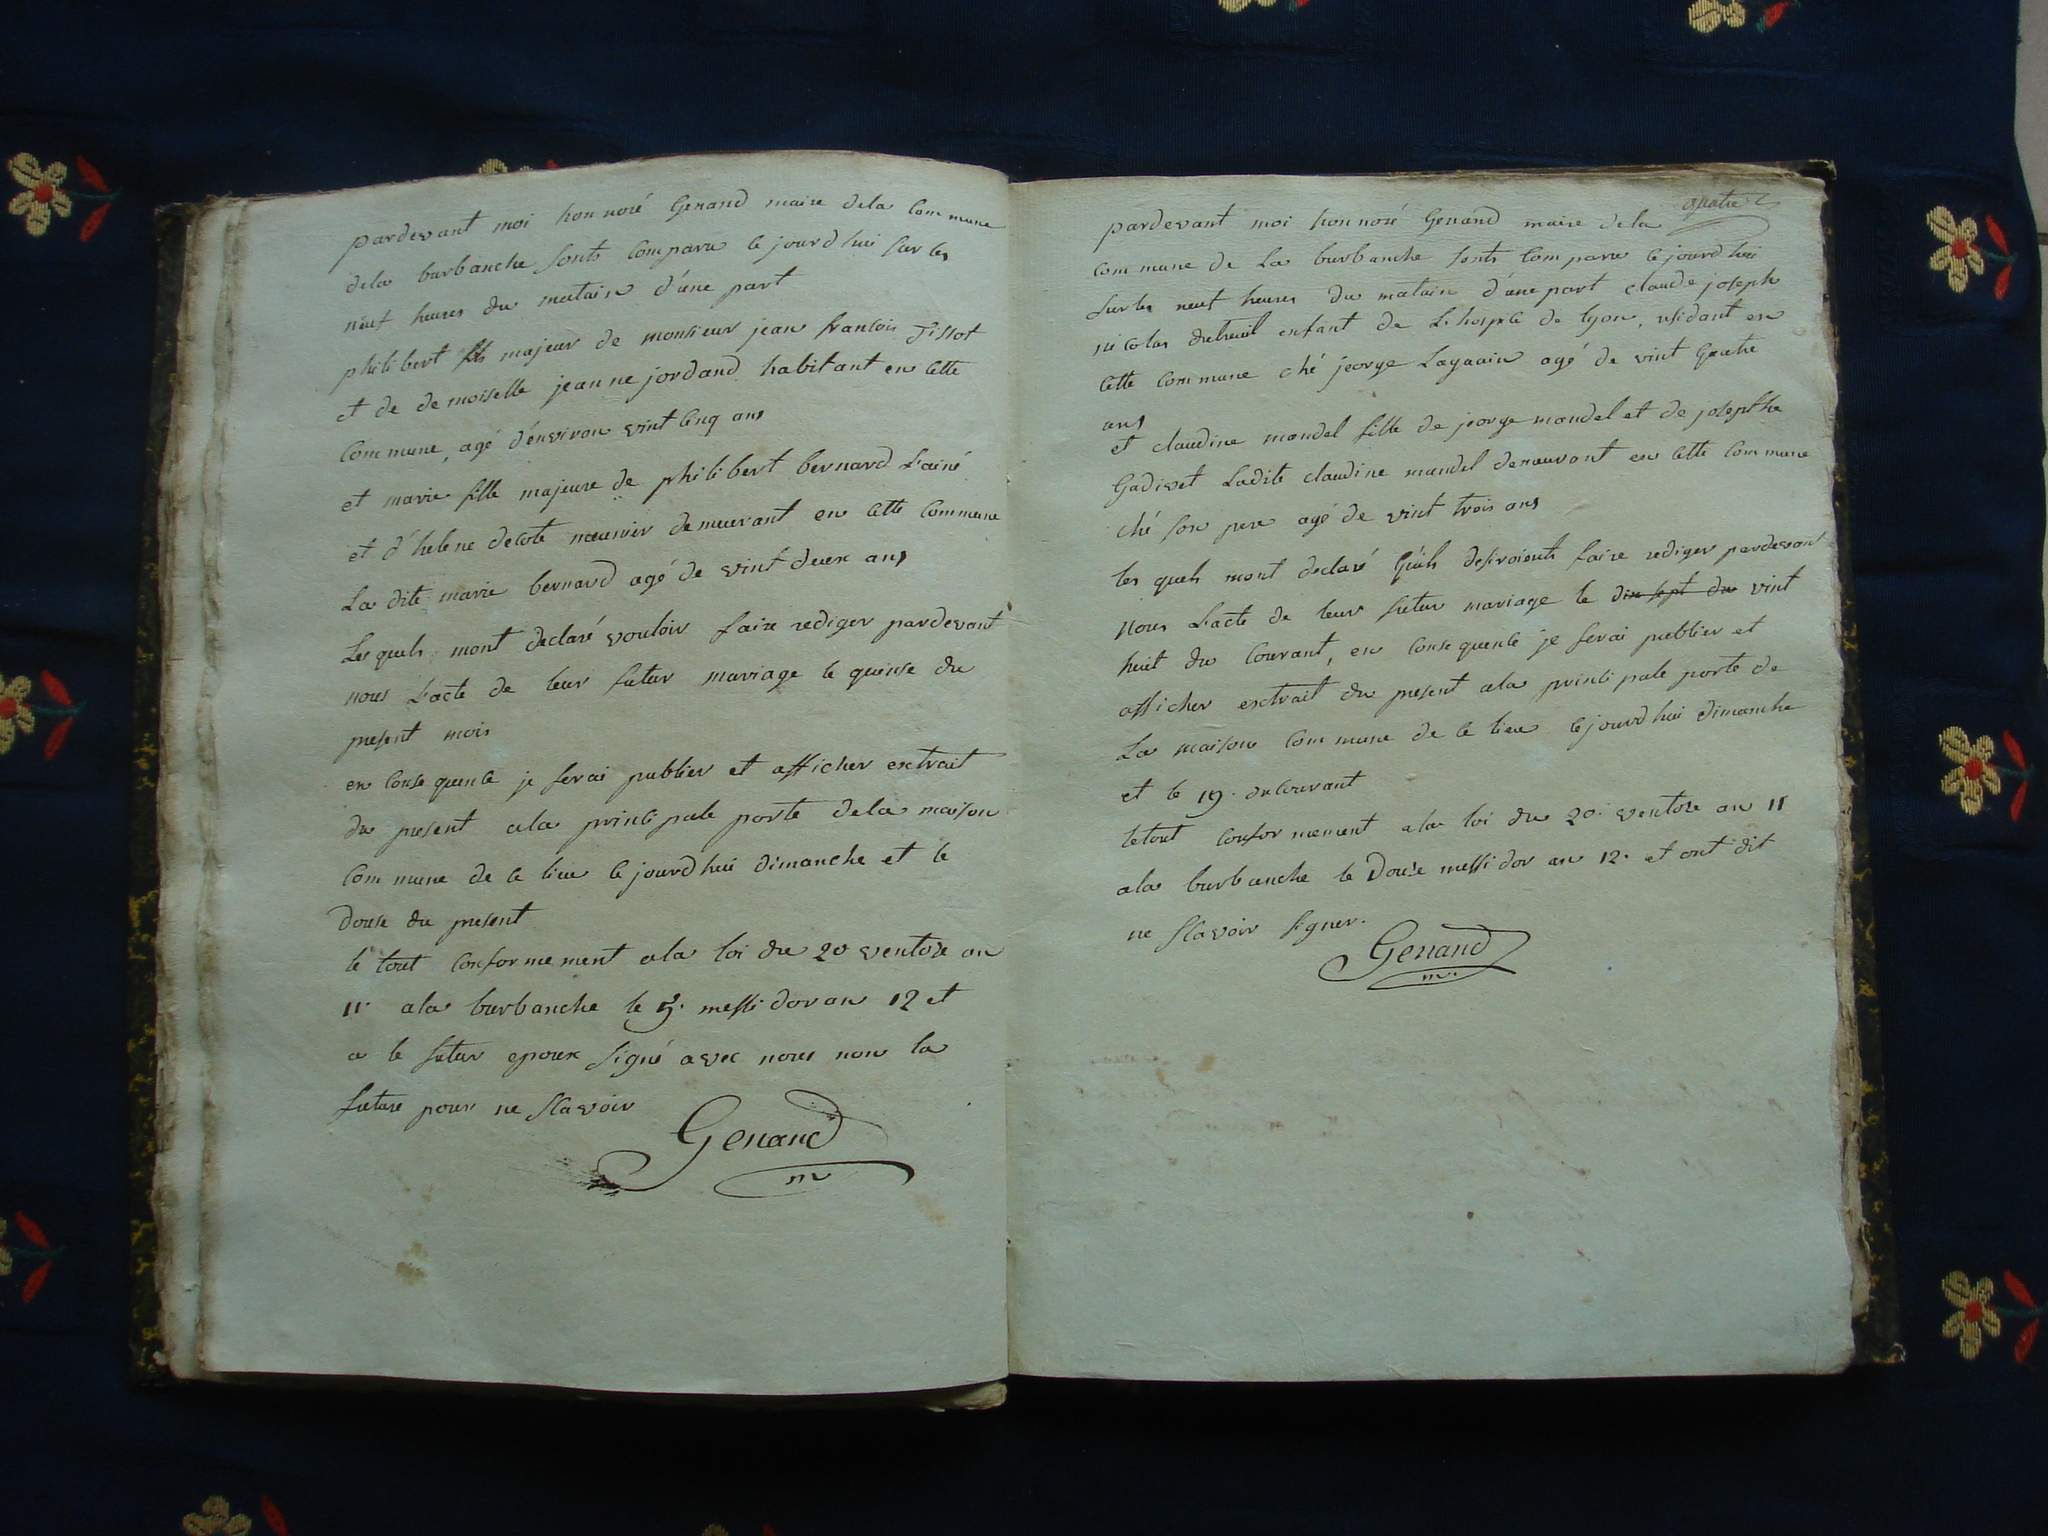 pardevant moi honnoré Genand maire dela Commune
dela burbanche sonts Comparu cejourdhui sur les
neuf heures du matain d'une part
philibert fils majeur de monsieur jean francois Tissot
et de demoiselle jeanne jordand habitant en Cette
Commune, agé d'environ vint Cinq ans
et marie fille majeure de philibert bernard L'ainé
et d'helene decote meunier demeurant en Cette Commune
La dite marie bernard agé de vint deux ans
Lesquels mont declaré vouloir faire rediger pardevant
nous L'acte de leur futur mariage le quinse du
present mois
en Consequence je ferai publier et afficher extrait
du present ala principale porte dela maison
Commune de Ce lieu Cejourdhui dimanche et le
douse du present
le tout Conformement ala loi du 20 ventose an
11 ala burbanche le 5. messidor an 12 et
a le futur epoux signé avec nous non la
future pour ne sCavoir
Genand
m
quatre
pardevant moi honnoré Genand maire dela
Commune de La burbanche sonts Comparu Cejourdhui
sur les neuf heures du matain d'une part claude joseph
nicolas dutreuil enfant de L'hospice de lyon, residant en
Cette Commune ché jeorge Lagaain agé de vint Quatre
ans
et claudine mandel fille de jeorge mandel et de josepthe
Gadivet Ladite claudine mandel demeurant en Cette Commune
ché son pere agé de vint trois ans
les quels mont declaré Qu'ils desiroients faire rediger pardevant
nous L'acte de leur futur mariage le dix sept du vint
huit du Courant, en Consequence je ferai publier et
afficher extrait du present ala principale porte de
La maison Commune de Ce lieu Cejourdhui dimanche
et le 19. du Courant
letout Conformement ala loi du 20. ventose an 11
ala burbanche le Douse messidor an 12. et ont dit
ne sCavoir signer.
Genand
m.